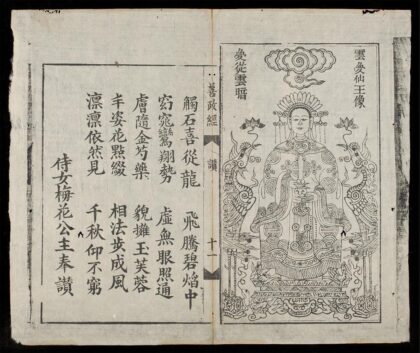 雲仙王像
從雲
善政經 讃 十一
觸石喜從龍 飛騰碧焰中
窈窕鸞翔勢 虛無眼照通
膚隨金芍藥 貌擁玉芙蓉
丰姿花點綴 相法步成風
凛凛依然見 千秋仰不窮
侍女梅花公主奉讃